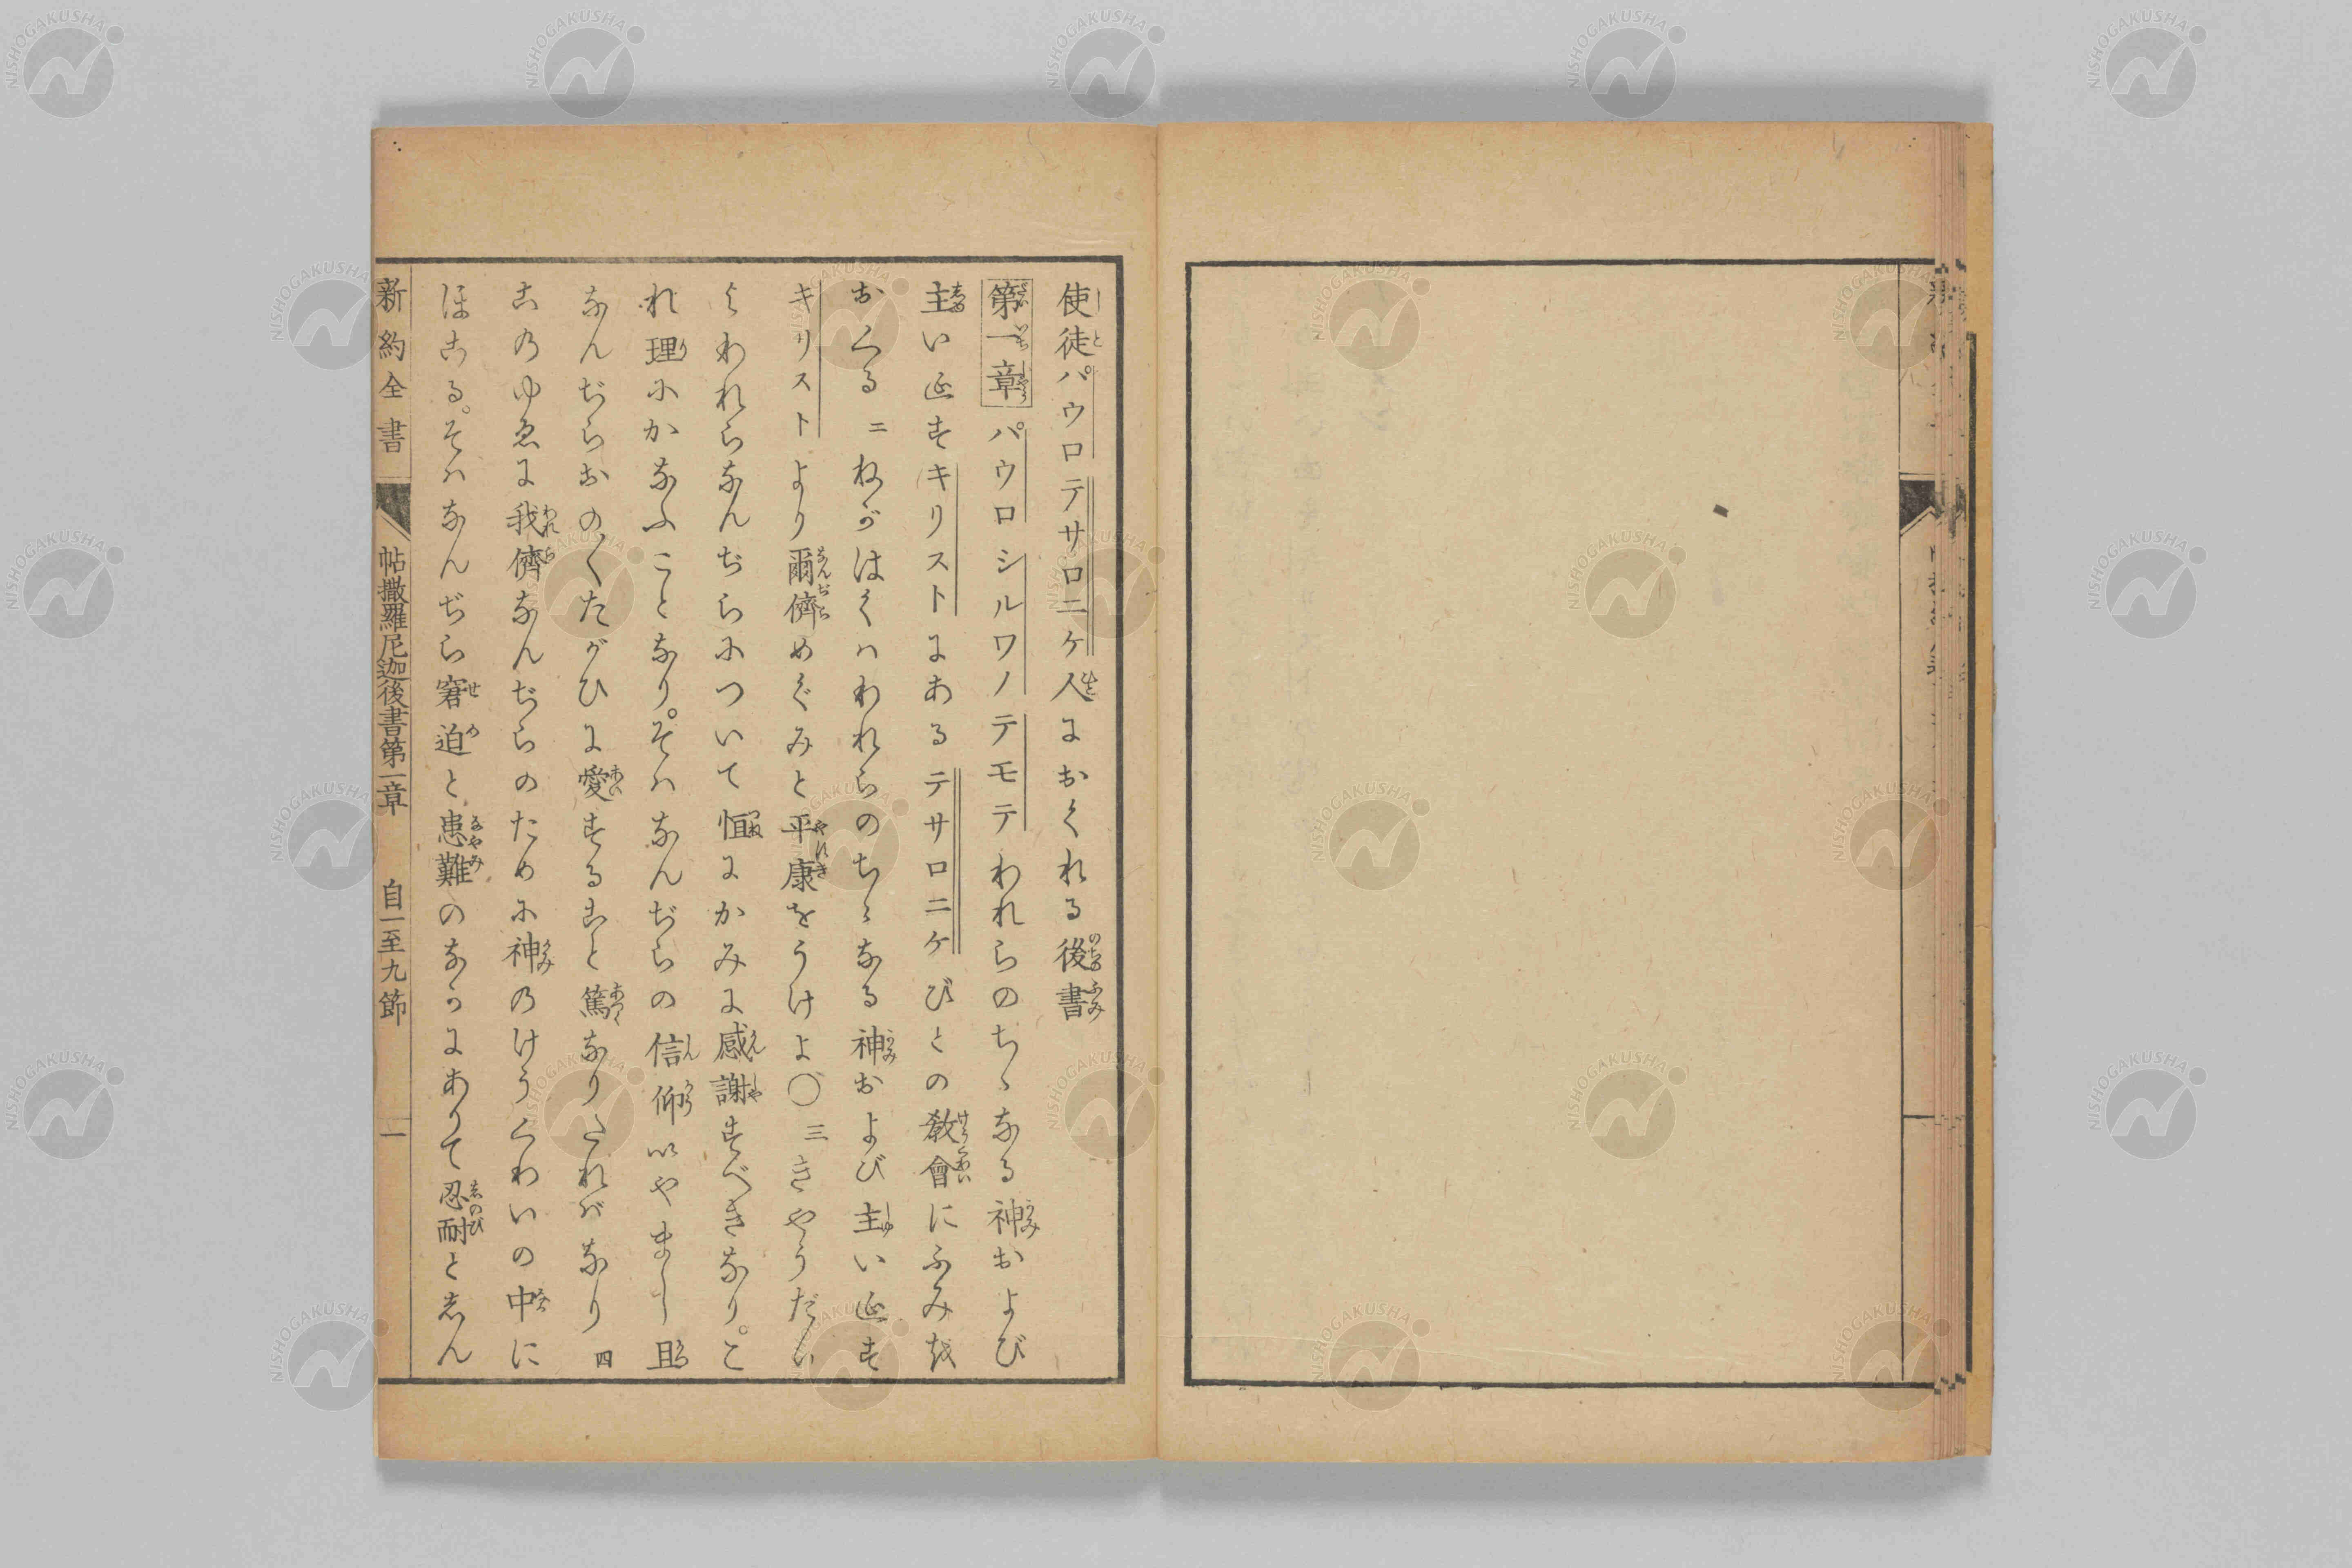 使徒パウロテサロニケ人におくれる後書
第一章 パウロシルワノテモテわれらのちゝなる神および
主いエすキリストにあるテサロニケびとの教會にふみを
おくる 二 ねがはくハわれらのちゝなる神および主いエす
キリストより爾儕めぐみと平康をうけよ〇 三 きやうだい
よわれらなんぢらについて恒にかみに感謝すべきなり。こ
れ理にかなふことなり。そハなんぢらの信仰いやまし且
なんぢらおの〱たがひに愛すること篤なりたれバなり 四
このゆゑに我儕なんぢらのために神のけうくわいの中に
ほこる。そハなんぢら窘迫と患難のなかにありて忍耐としん
新約全書 帖撒羅尼迦後書第一章 自一至九節 一